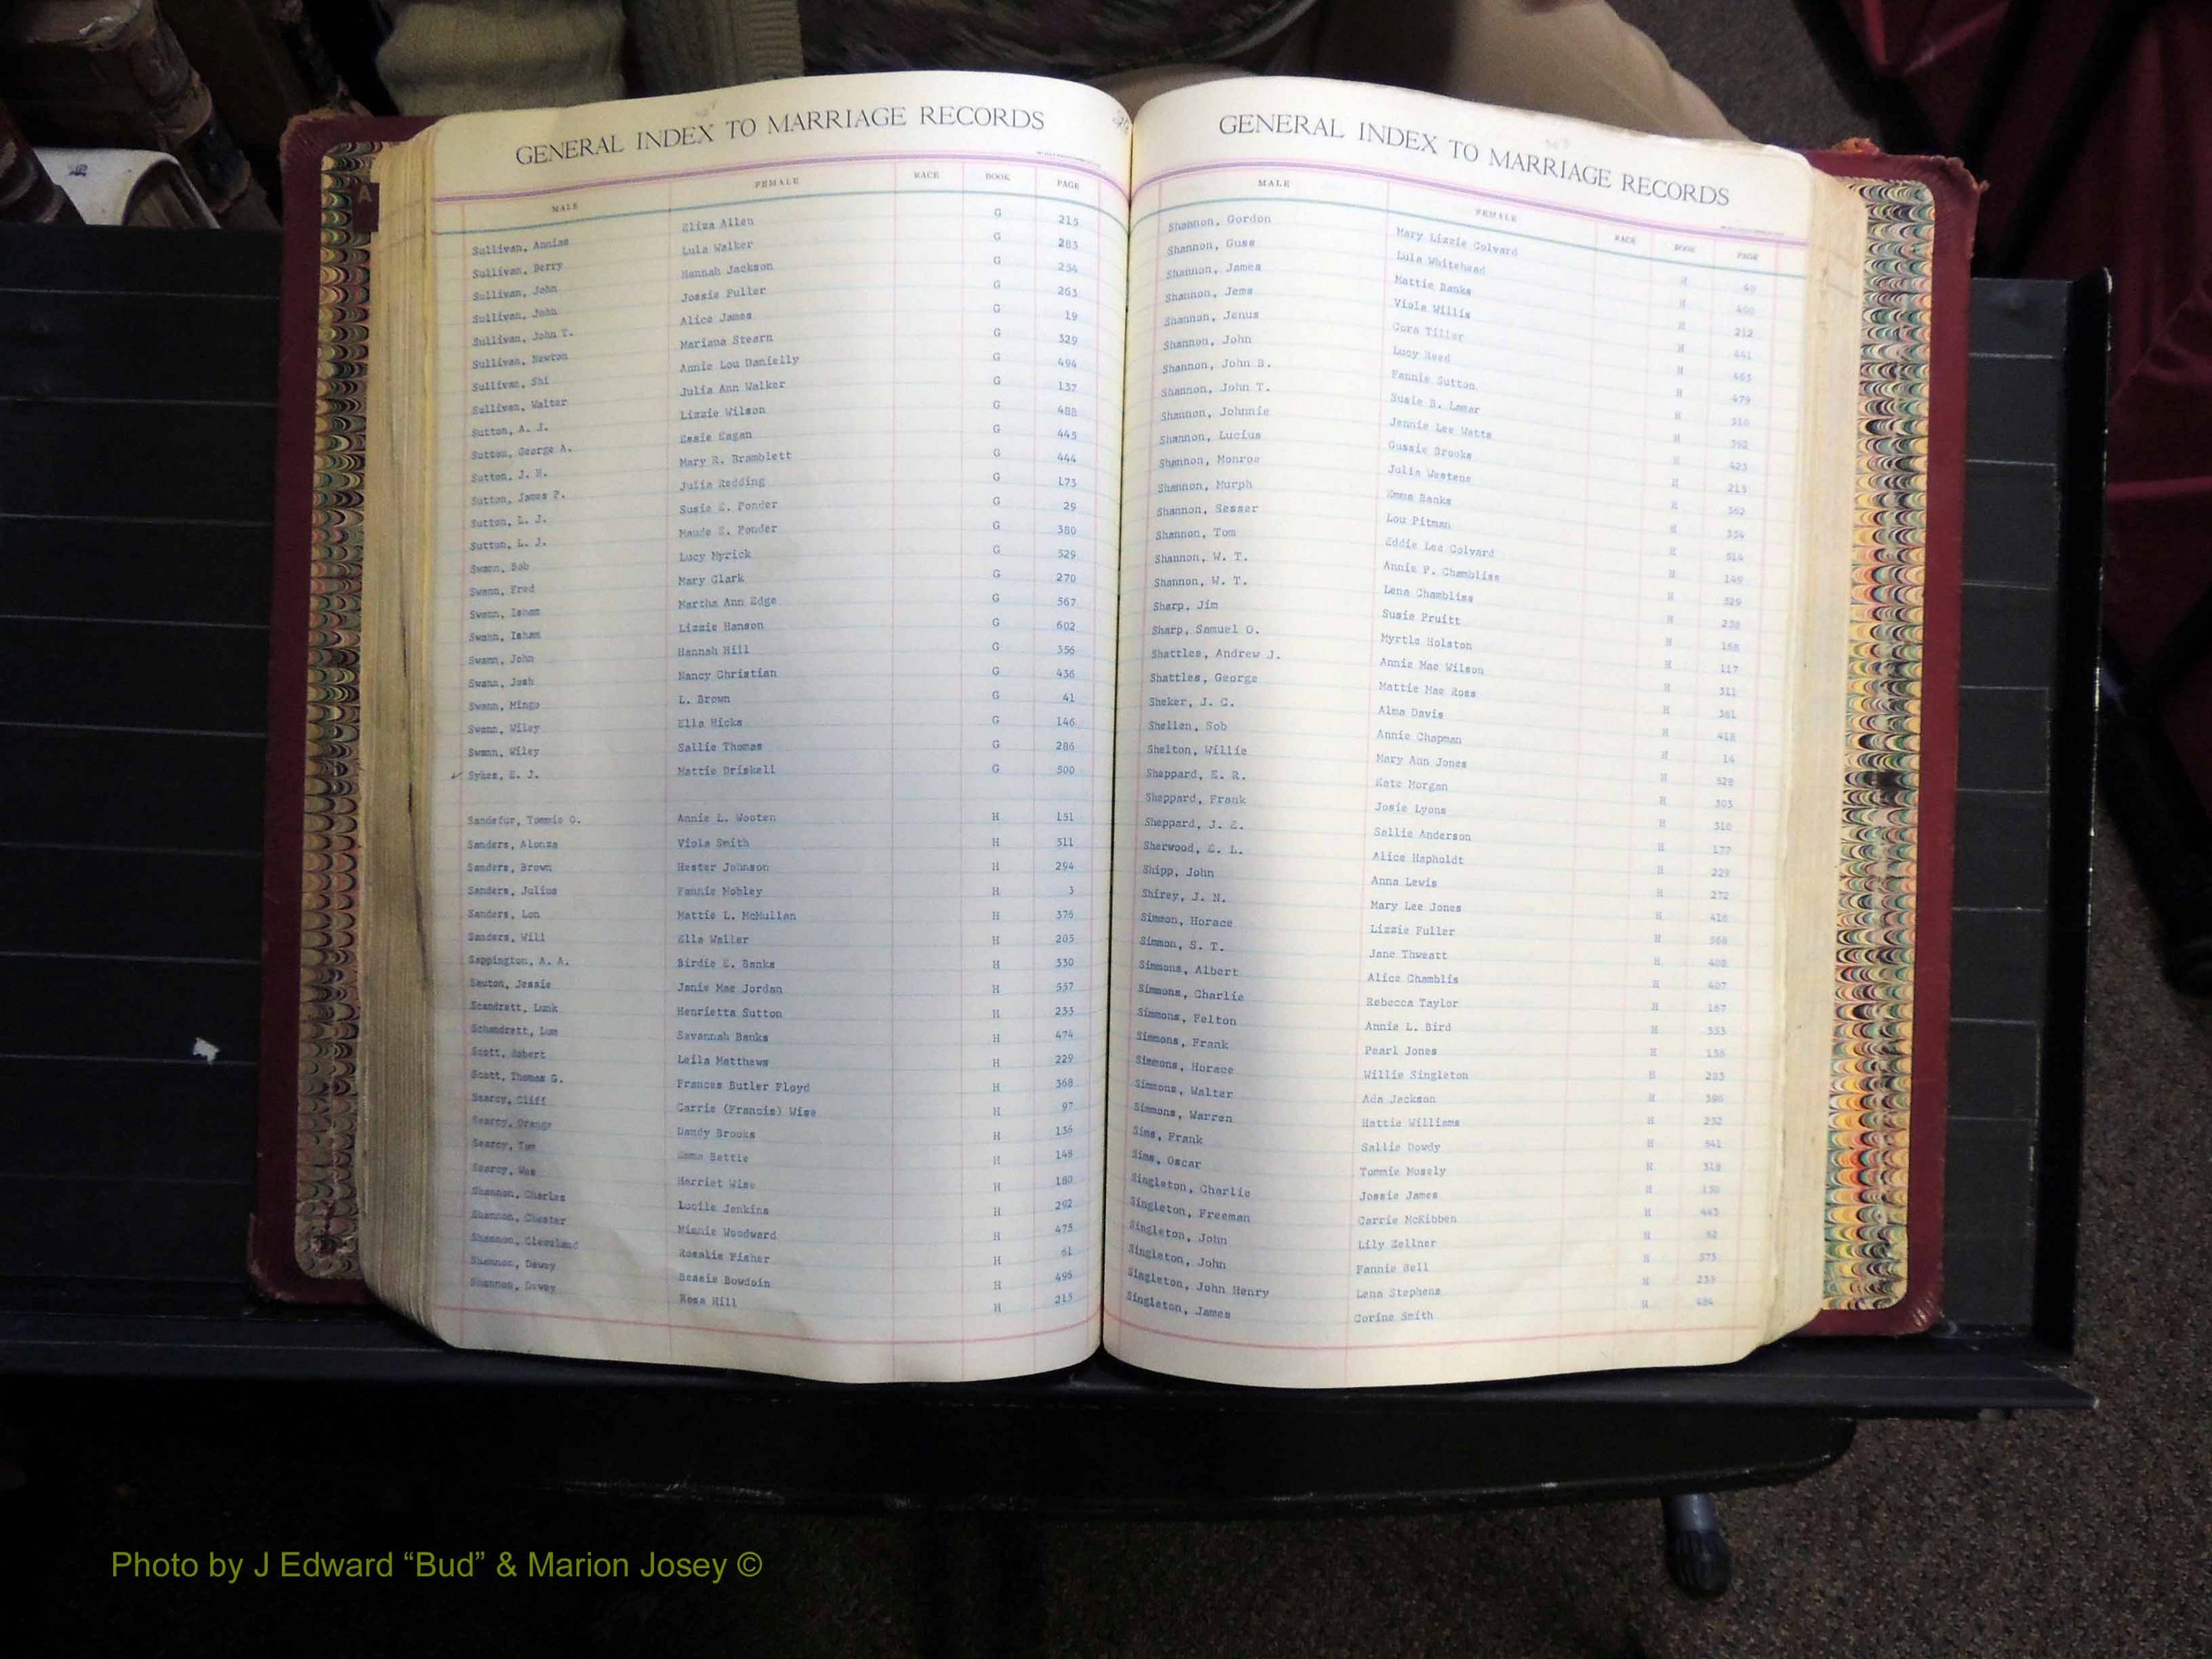 GENERAL INDEX TO MARRIAGE RECORDS
MALE FEMALE RACE BOOK PAGE
Sullivan, Annias Eliza Allen G 215
Sullivan, Berry Lula Walker G 283
Sullivan, John Hannah Jackson G 254
Sullivan, John Jossie Fuller G 263
Sullivan, John T. Alice James G 19
Sullivan, Newton Mariana Stearn G 329
Sullivan, Shi Annie Lou Danielly G 494
Sullivan, Walter Julia Ann Walker G 137
Sutton, A. J. Lizzie Wilson G 488
Sutton, George A. Essie Eagan G 445
Sutton, J. H. Mary R. Bramblett G 444
Sutton, James P. Julia Redding G 173
Sutton, L. J. Susie E. Ponder G 29
Sutton, L. J. Maude E. Ponder G 380
Swann, Bob Lucy Myrick G 529
Swann, Fred Mary Clark G 270
Swann, Isham Martha Ann Edge G 567
Swann, Isham Lizzie Hanson G 602
Swann, John Hannah Hill G 356
Swann, Josh Nancy Christian G 436
Swann, Mingo L. Brown G 41
Swann, Wiley Ella Hicks G 146
Swann, Wiley Sallie Thomas G 286
✓ Sykes, E. J. Mattie Driskell G 500
Sandefur, Tommie O. Annie L. Wooten H 151
Sanders, Alonza Viola Smith H 511
Sanders, Brown Hester Johnson H 294
Sanders, Julius Fannie Mobley H 3
Sanders, Lon Mattie L. McMullan H 376
Sanders, Will Ella Waller H 205
Sappington, A. A. Birdie E. Banks H 330
Sauton, Jessie Janie Mae Jordan H 557
Scandrett, Lunk Henrietta Sutton H 233
Schandrett, Lum Savannah Banks H 474
Scott, Robert Leila Matthews H 229
Scott, Thomas G. Frances Butler Floyd H 368
Searcy, Cliff Carrie (Francis) Wise H 97
Searcy, Orange Dandy Brooks H 136
Searcy, Tom Emma Battle H 148
Searcy, Wes Harriet Wise H 180
Shannon, Charles Lucile Jenkins H 292
Shannon, Chester Minnie Woodward H 475
Shannon, Cleveland Rosalie Fisher H 61
Shannon, Dewey Bessie Bowdoin H 495
Shannon, Dewey Rosa Hill H 213
GENERAL INDEX TO MARRIAGE RECORDS
MALE FEMALE RACE BOOK PAGE
Shannon, Gordon Mary Lizzie Colvard H 40
Shannon, Guss Lula Whitehead H
Shannon, James Mattie Banks H 212
Shannon, Jems Viola Willis H 441
Shannon, Jenus Cora Tiller H 463
Shannon, John Lucy Reed H 479
Shannon, John B. Fannie Sutton H 510
Shannon, John T. Susie B. Lamar H 392
Shannon, Johnnie Jennie Lee Watts H 423
Shannon, Lucius Gussie Brooks H 215
Shannon, Monroe Julia Westens H 362
Shannon, Murph Emma Banks H 334
Shannon, Sesser Lou Pitman H 514
Shannon, Tom Eddie Lee Colvard H 149
Shannon, W. T. Annie P. Chambliss H 529
Shannon, W. T. Lena Chambliss H 238
Sharp, Jim Susie Pruitt H 168
Sharp, Samuel O. Myrtle Holston H 117
Shattles, Andrew J. Annie Mae Wilson H 311
Shattles, George Mattie Mae Ross H 361
Sheker, J. C. Alma Davis H 418
Shellen, Bob Annie Chapman H 14
Shelton, Willie Mary Ann Jones H 528
Sheppard, E. R. Kate Morgan H 303
Sheppard, Frank Josie Lyons H 310
Sheppard, J. E. Sallie Anderson H 177
Sherwood, E. L. Alice Hapholdt H 229
Shipp, John Anna Lewis H 272
Shirey, J. N. Mary Lee Jones H 418
Simmon, Horace Lizzie Fuller H 566
Simmon, S. T. Jane Thweatt H 408
Simmons, Albert Alice Chamblis H 407
Simmons, Charlie Rebecca Taylor H 167
Simmons, Felton Annie L. Bird H 353
Simmons, Frank Pearl Jones H 138
Simmons, Horace Willie Singleton H 203
Simmons, Walter Ada Jackson H 396
Simmons, Warren Hattie Williams H 232
Sims, Frank Sallie Dowdy H 541
Sims, Oscar Tommie Mosely H 318
Singleton, Charlie Jossie James H 130
Singleton, Freeman Carrie McKibben H 443
Singleton, John Lily Zellner H 82
Singleton, John Fannie Bell H 575
Singleton, John Henry Lena Stephens H 235
Singleton, James Corine Smith H 484
Photo by J Edward “Bud” & Marion Josey ©